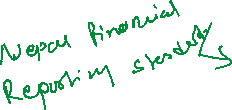 Nepal Financial
Reporting standards